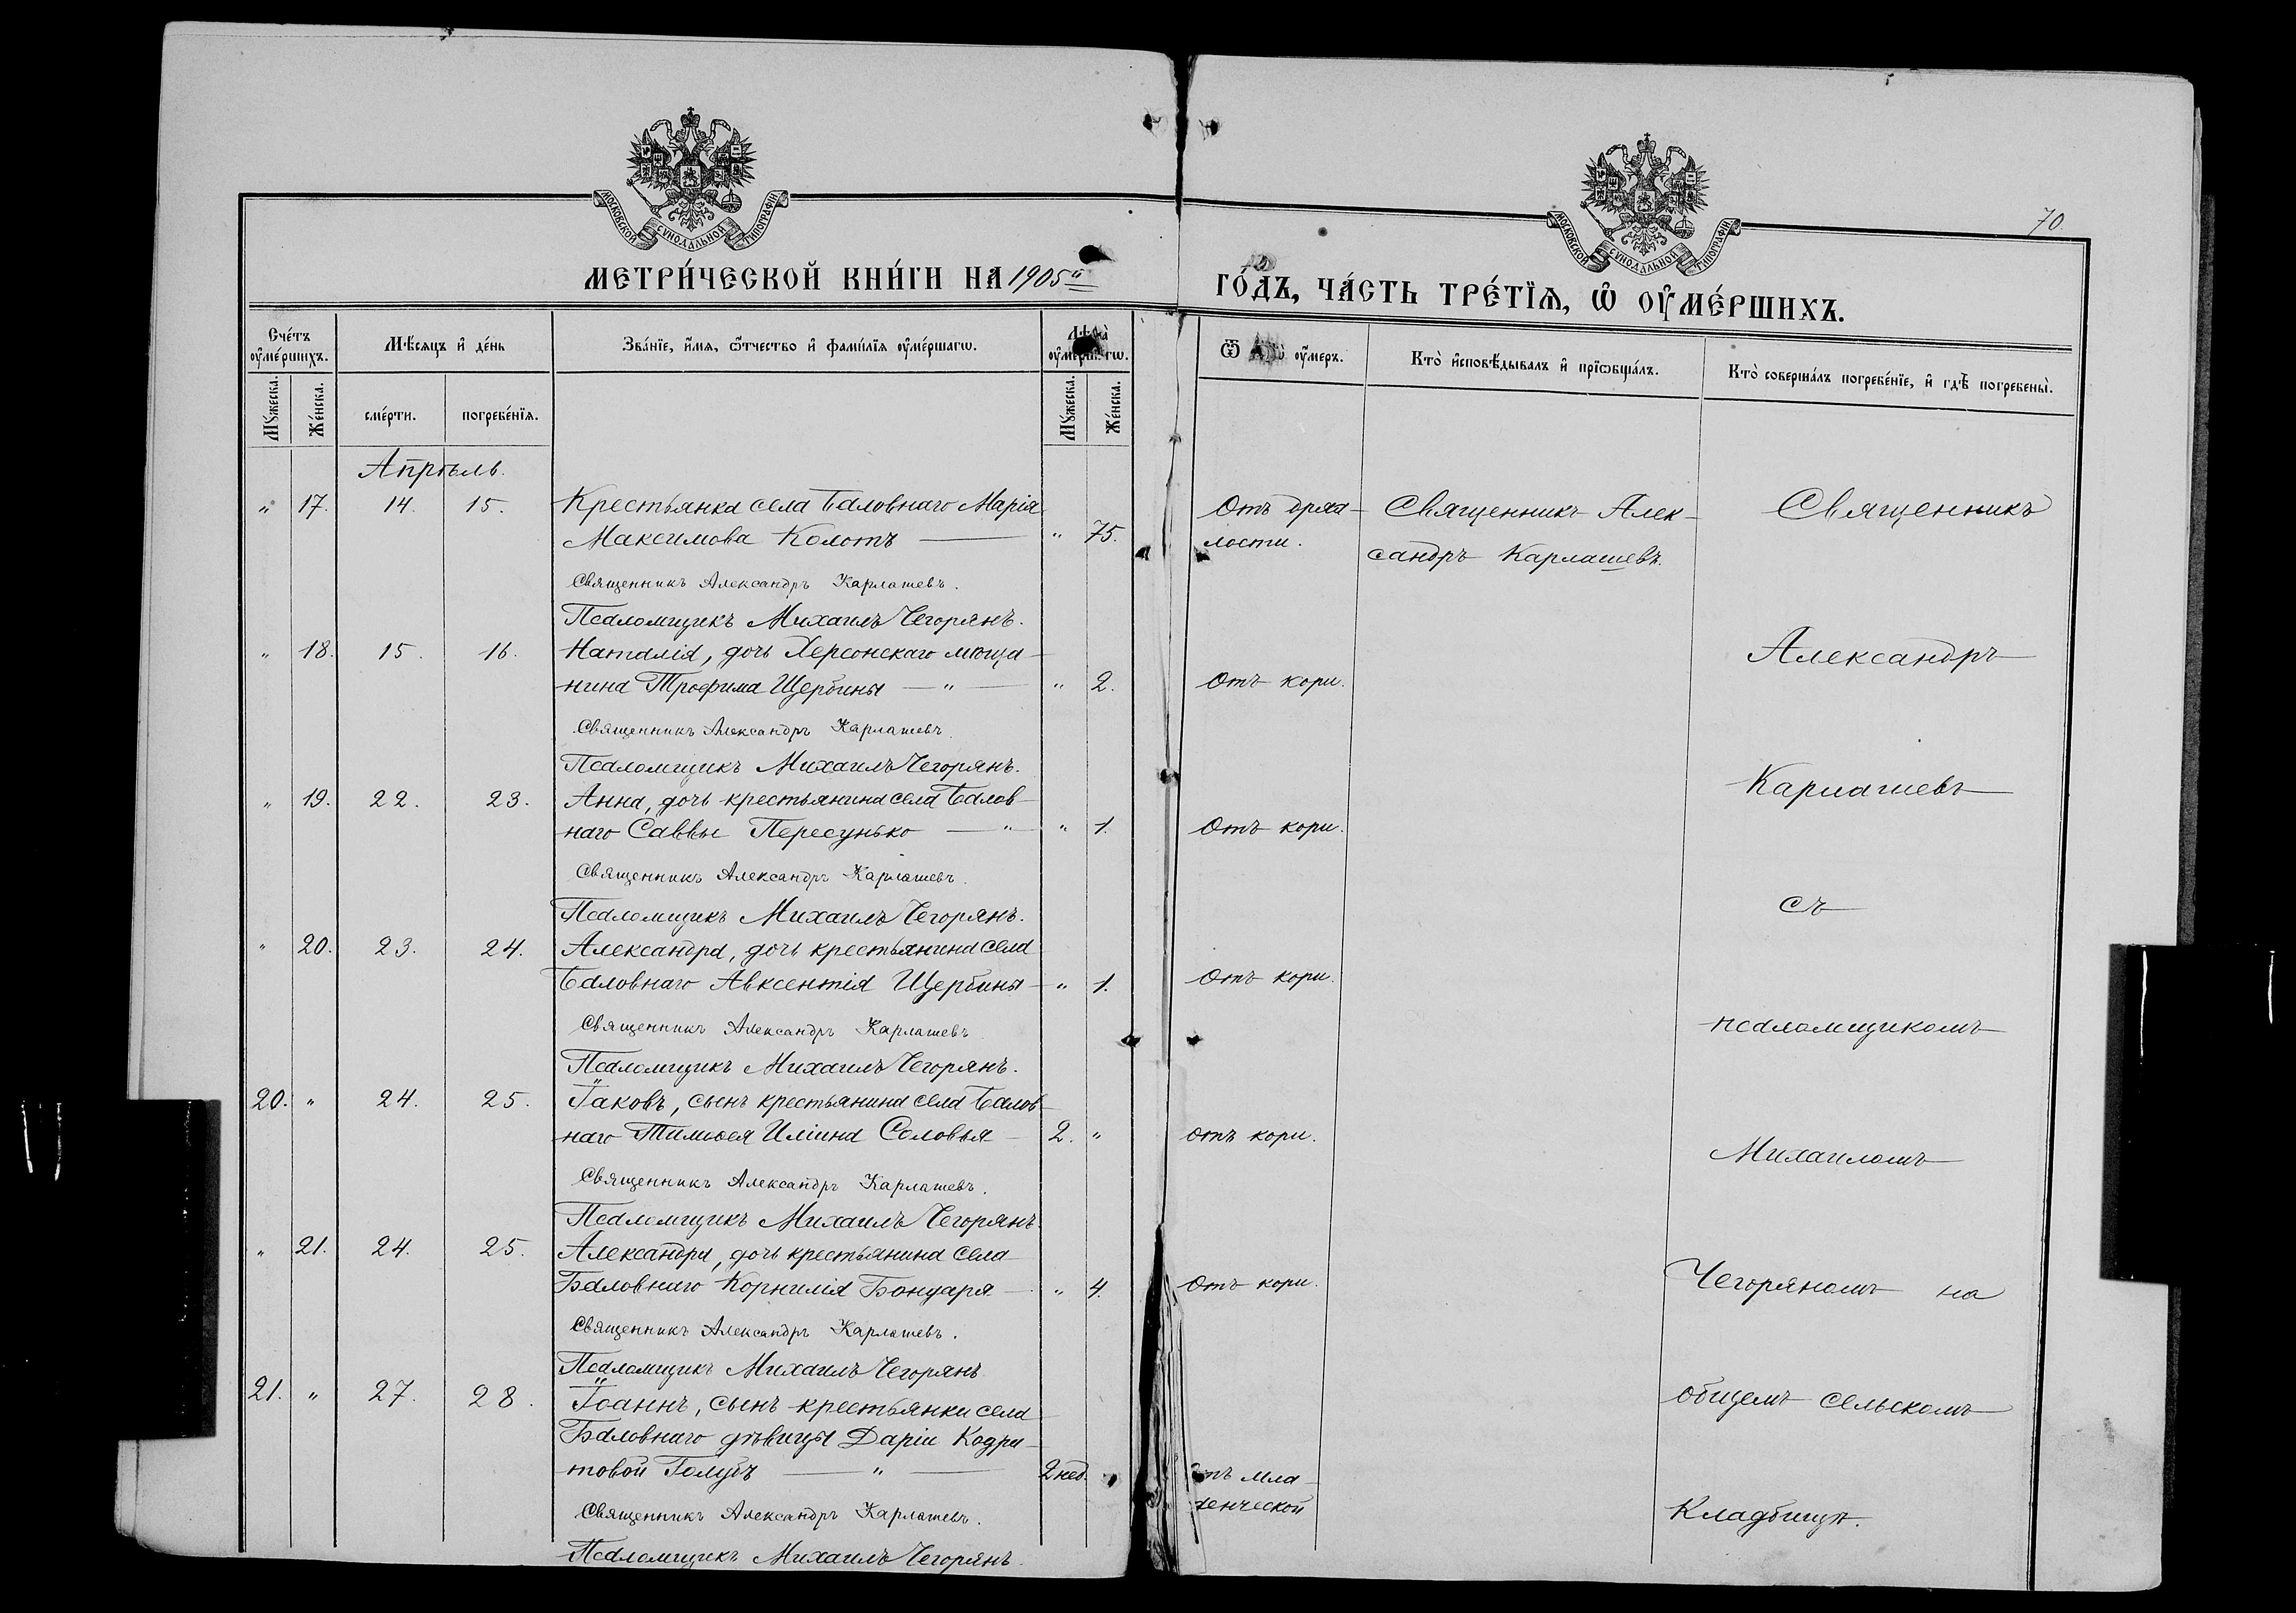 МОСКОВСКОЙ СѴНОДАЛЬНОЙ ТИПОГРАФІИ
МОСКОВСКОЙ СѴНОДАЛЬНОЙ ТИПОГРАФІИ
70.
МЕТРИ́ЧЕСКОЙ КНИ́ГИ НА 1905й
ГО́ДЪ, ЧА́СТЬ ТРЕ́ТЇѦ, Ѡ҆ ОУ҆МЕ́РШИХЪ.
Сче́тъ оу҆ме́ршихъ.
Мѣ́сяцъ и҆ де́нь
Зва́нїе, и҆́мя, ѻ҆́тчество и҆ фами́лїя оу҆ме́ршагѡ.
Лѣта̀ оу҆ме́ршагѡ.
Ѿ чегѡ̀ оу҆́меръ.
Кто̀ и҆сповѣ́дывалъ и҆ прїѡбща́лъ.
Кто̀ соверша́лъ погребе́нїе, и҆ гдѣ̀ погребены̀.
Му́жеска.
Же́нска.
сме́рти.
погребе́нїя.
Му́жеска.
Же́нска.
Апрѣль.
„ 17. 14. 15. Крестьянка села Баловнаго Марія Отъ дрях- Священникъ Алек- Священникъ
Максимова Колотъ — „ 75. лости. сандръ Карлашевъ.
Священникъ Александръ Карлашевъ.
Псаломщикъ Михаилъ Чегорянъ.
„ 18. 15. 16. Наталія, дочь Херсонскаго мѣща- Александръ
нина Трофима Щербины — „ — „ 2. Отъ кори.
Священникъ Александръ Карлашевъ.
Псаломщикъ Михаилъ Чегорянъ.
„ 19. 22. 23. Анна, дочь крестьянина села Балов- Карлашевъ
наго Саввы Пересунько — „ „ 1. Отъ кори.
Священникъ Александръ Карлашевъ.
Псаломщикъ Михаилъ Чегорянъ.
съ
„ 20. 23. 24. Александра, дочь крестьянина села
Баловнаго Авксентія Щербины — „ 1. Отъ кори.
Священникъ Александръ Карлашевъ псаломщикомъ
Псаломщикъ Михаилъ Чегорянъ.
20. „ 24. 25. Іаковъ, сынъ крестьянина села Балов-
наго Тимоѳея Иліина Соловья — 2. „ отъ кори. Михаиломъ
Священникъ Александръ Карлашевъ.
Псаломщикъ Михаилъ Чегорянъ.
„ 21. 24. 25. Александра, дочь крестьянина села
Баловнаго Корнилія Бондаря — „ 4. Отъ кори. Чегоряномъ на
Священникъ Александръ Карлашевъ.
Псаломщикъ Михаилъ Чегорянъ
21. „ 27. 28. Іоаннъ, сынъ крестьянки села общемъ сельскомъ
Баловнаго дѣвицы Даріи Кодра-
товой Голубъ — „ — 2 нед. Отъ мла-
Священникъ Александръ Карлашевъ. денческой Кладбищѣ.
Псаломщикъ Михаилъ Чегорянъ.